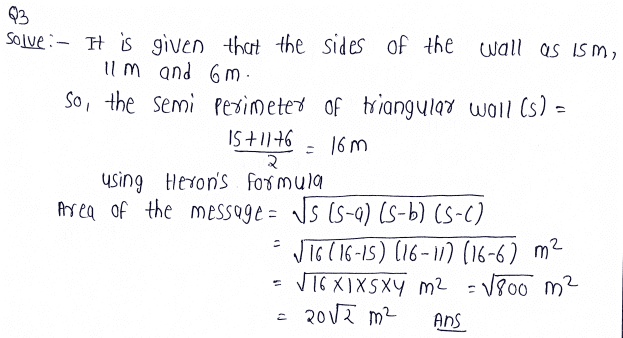 Q3
Solve:- It is given that the sides of the wall as 15m,
11 m and 6m.
So, the semi perimeter of triangular wall (s) =
15+11+6/2 = 16m
using Heron's formula
Area of the message = √s (s-a) (s-b) (s-c)
= √16 (16-15) (16-11) (16-6) m²
= √16 X1X5X4 m² = √800 m²
= 20√2 m² Ans